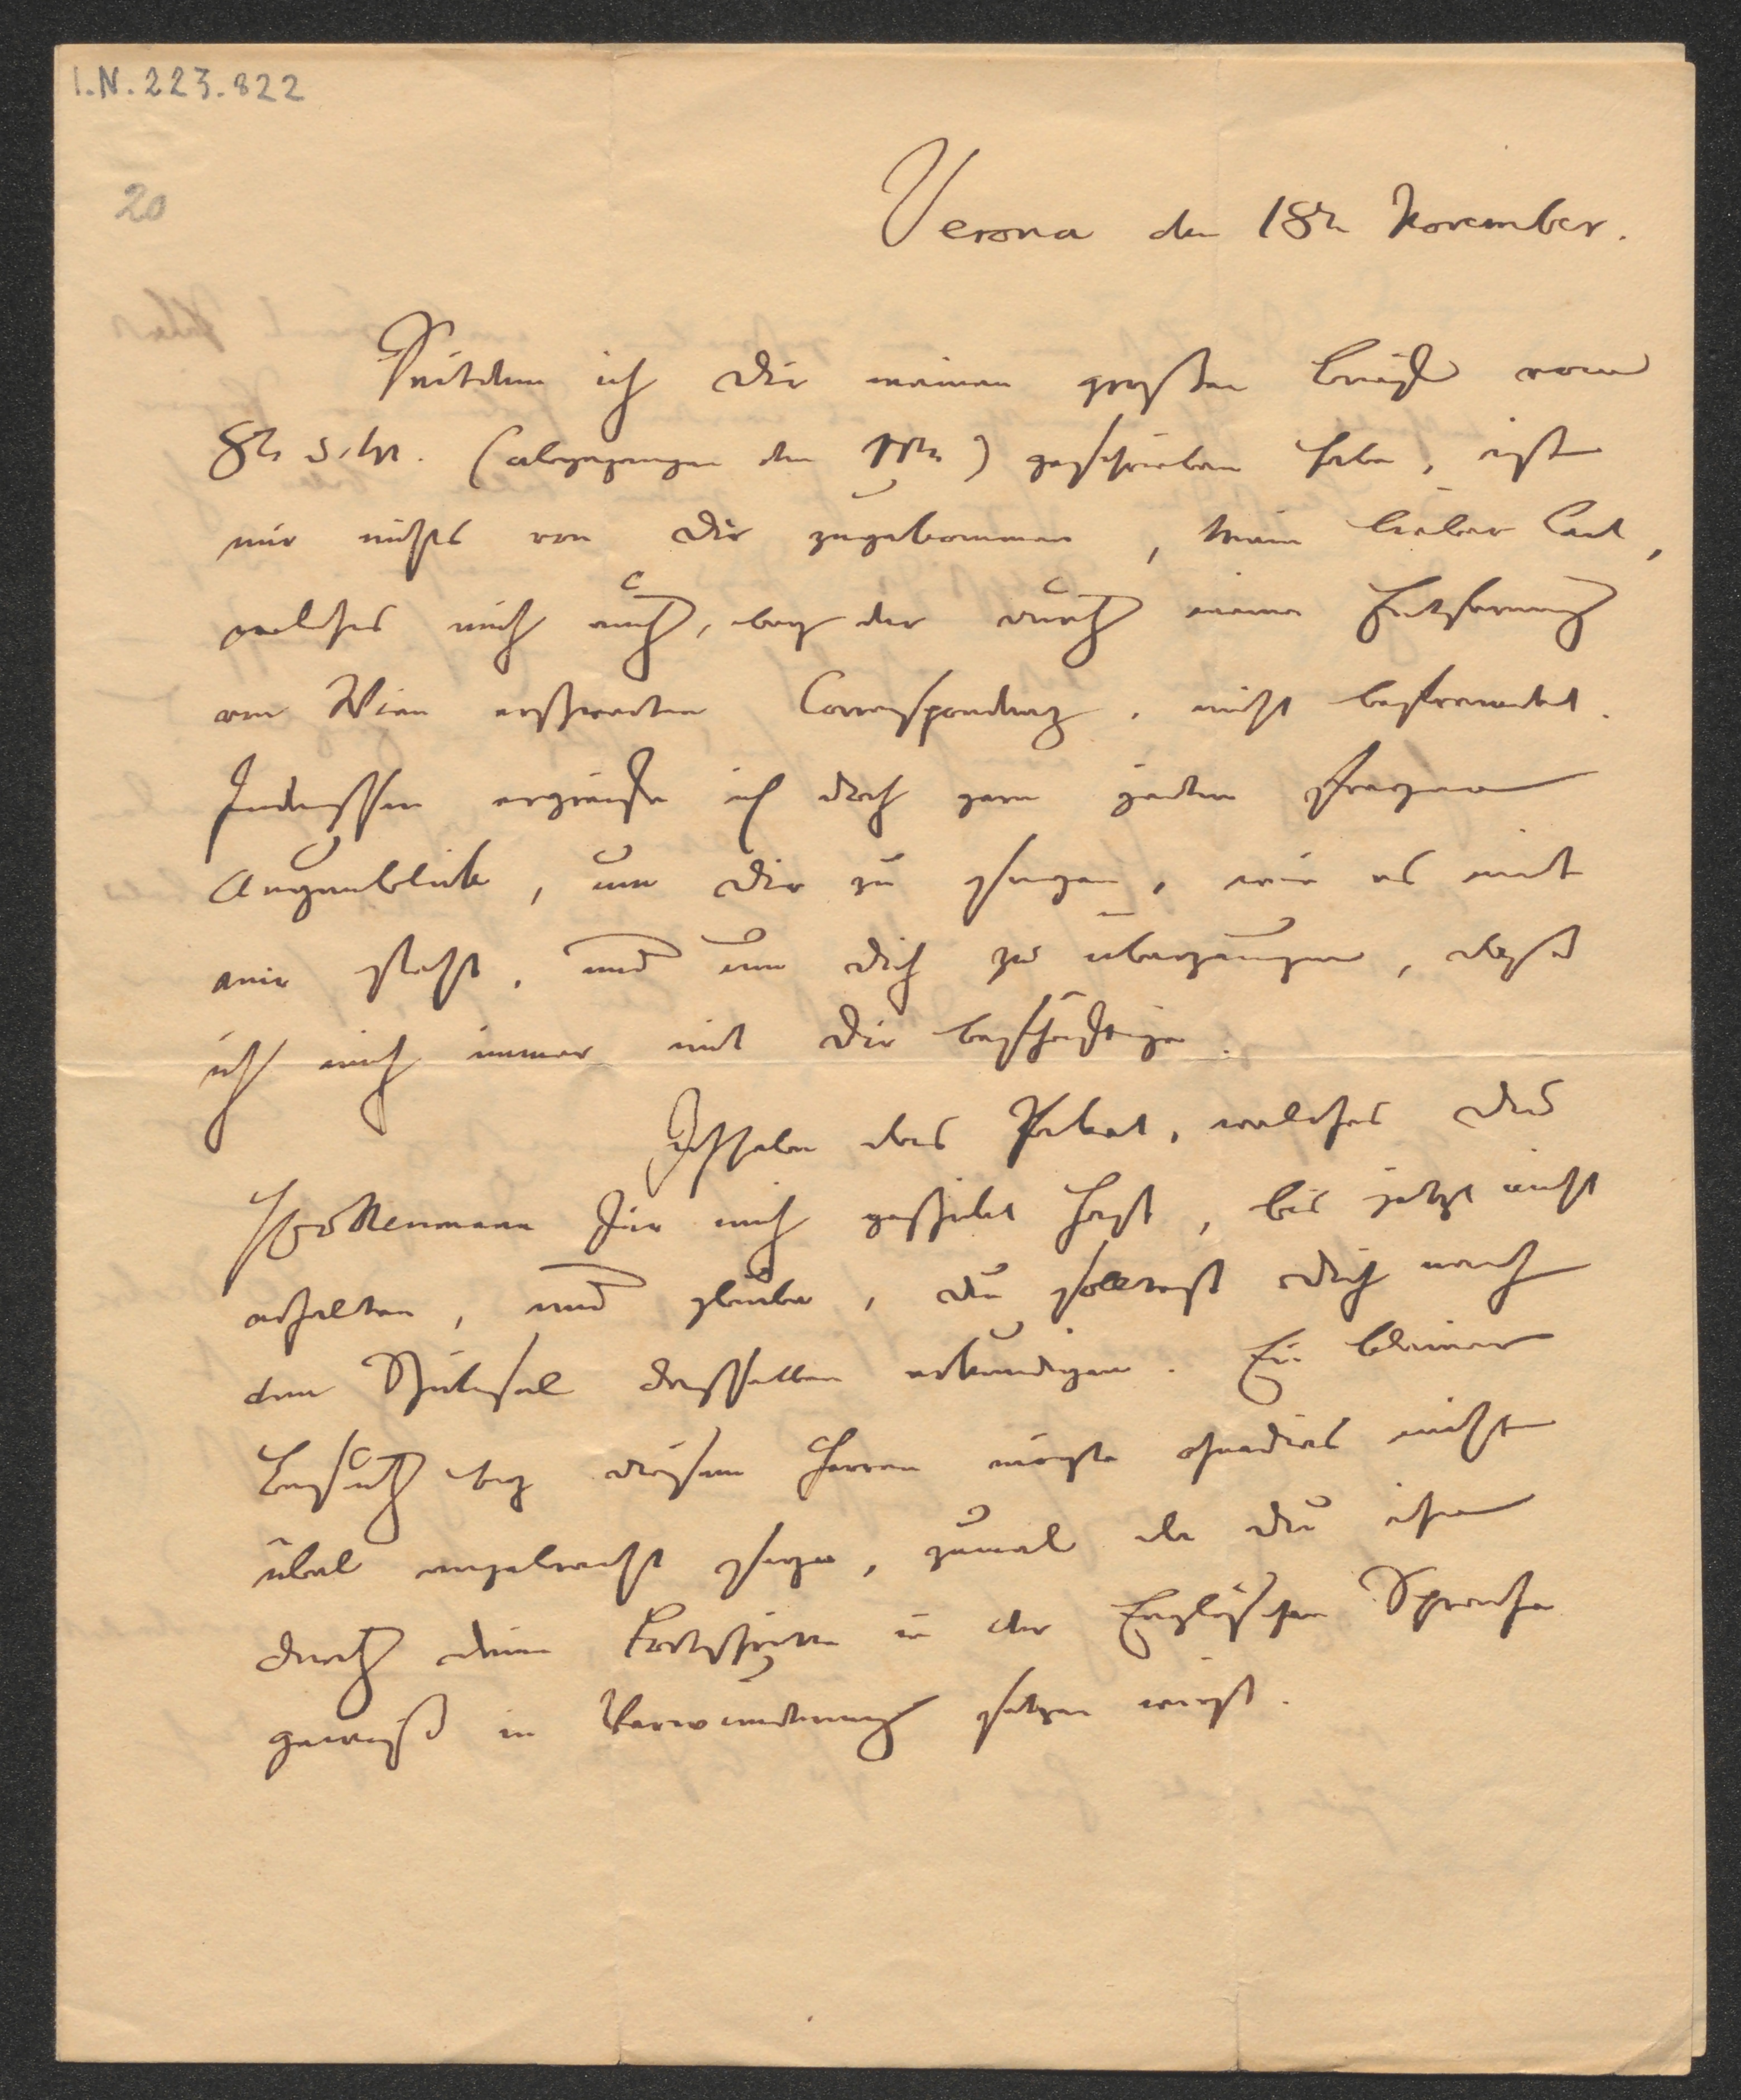 I.N. 223.822
20
Verona den 18n November.
Seitdem ich Dir meinen großen Brief vom
8n d. M. (abgegangen den 11n) geschrieben habe, ist
mir nichts von Dir zugekommen, mein lieber Carl,
welches mich auch, bey der durch meine Entfernung
von Wien erschwerten Correspondenz, nicht befremdet.
Indessen ergreife ich doch gern jeden freyen
Augenblick, um Dir zu sagen, wie es mit
mir steht, und um Dich zu überzeugen, daß
ich mich immer mit Dir beschäftige.
Ich habe das Paket, welches Du
für mich geschickt hast, bis jetzt nicht
erhalten, und glaube, Du solltest Dich nach
dem Schicksal desselben erkundigen. Ein kleiner
Besuch bey diesem Herren möchte ohnedies nicht
übel angebracht seyn, zumal da Du ihn
durch deine Fortschritte in der Englischen Sprache
gewiß in Verwunderung setzen wirst.